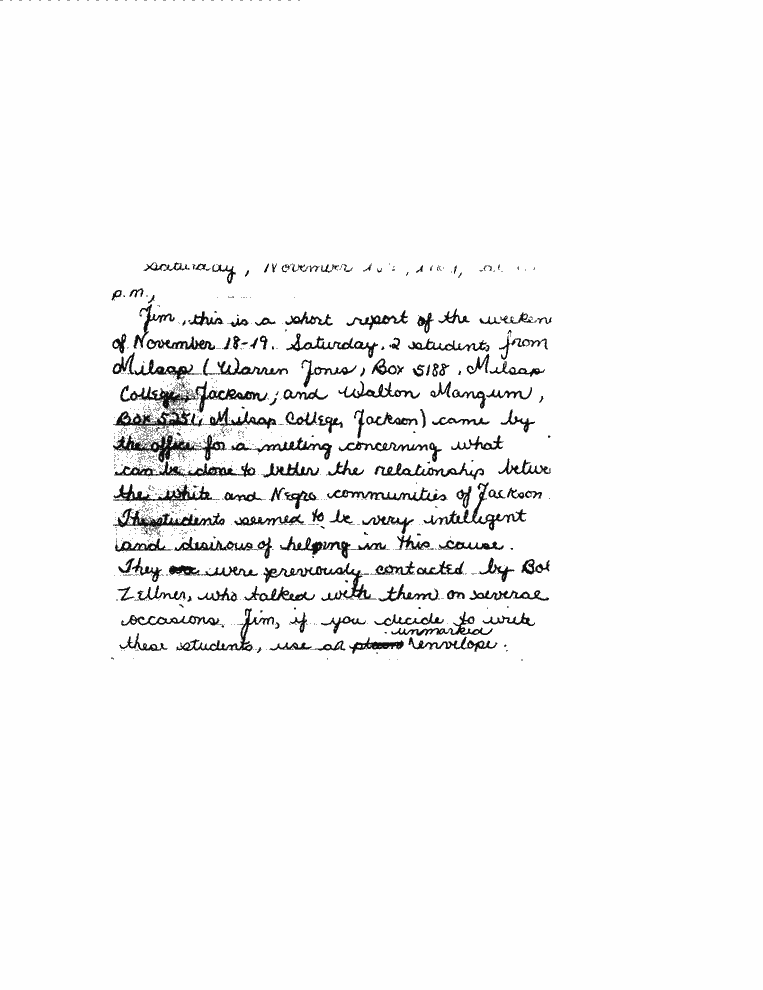 Saturday, November
p.m.,
Jim, this is a short report of the weeken
of November 18-19. Saturday, 2 students from
Milsap (Warren Jones, Box 5188, Milsap
College, Jackson; and Walton Mangum,
Box 5251, Milsap College, Jackson) came by
the office for a meeting concerning what
can be done to better the relationship betwe
the white and Negro communities of Jackson.
The students seemed to be very intelligent
and desirous of helping in this cause.
They were previously contacted by Bob
Zellner, who talked with them on several
occasions. Jim, if you decide to write
unmarked
these students, use an envelope.